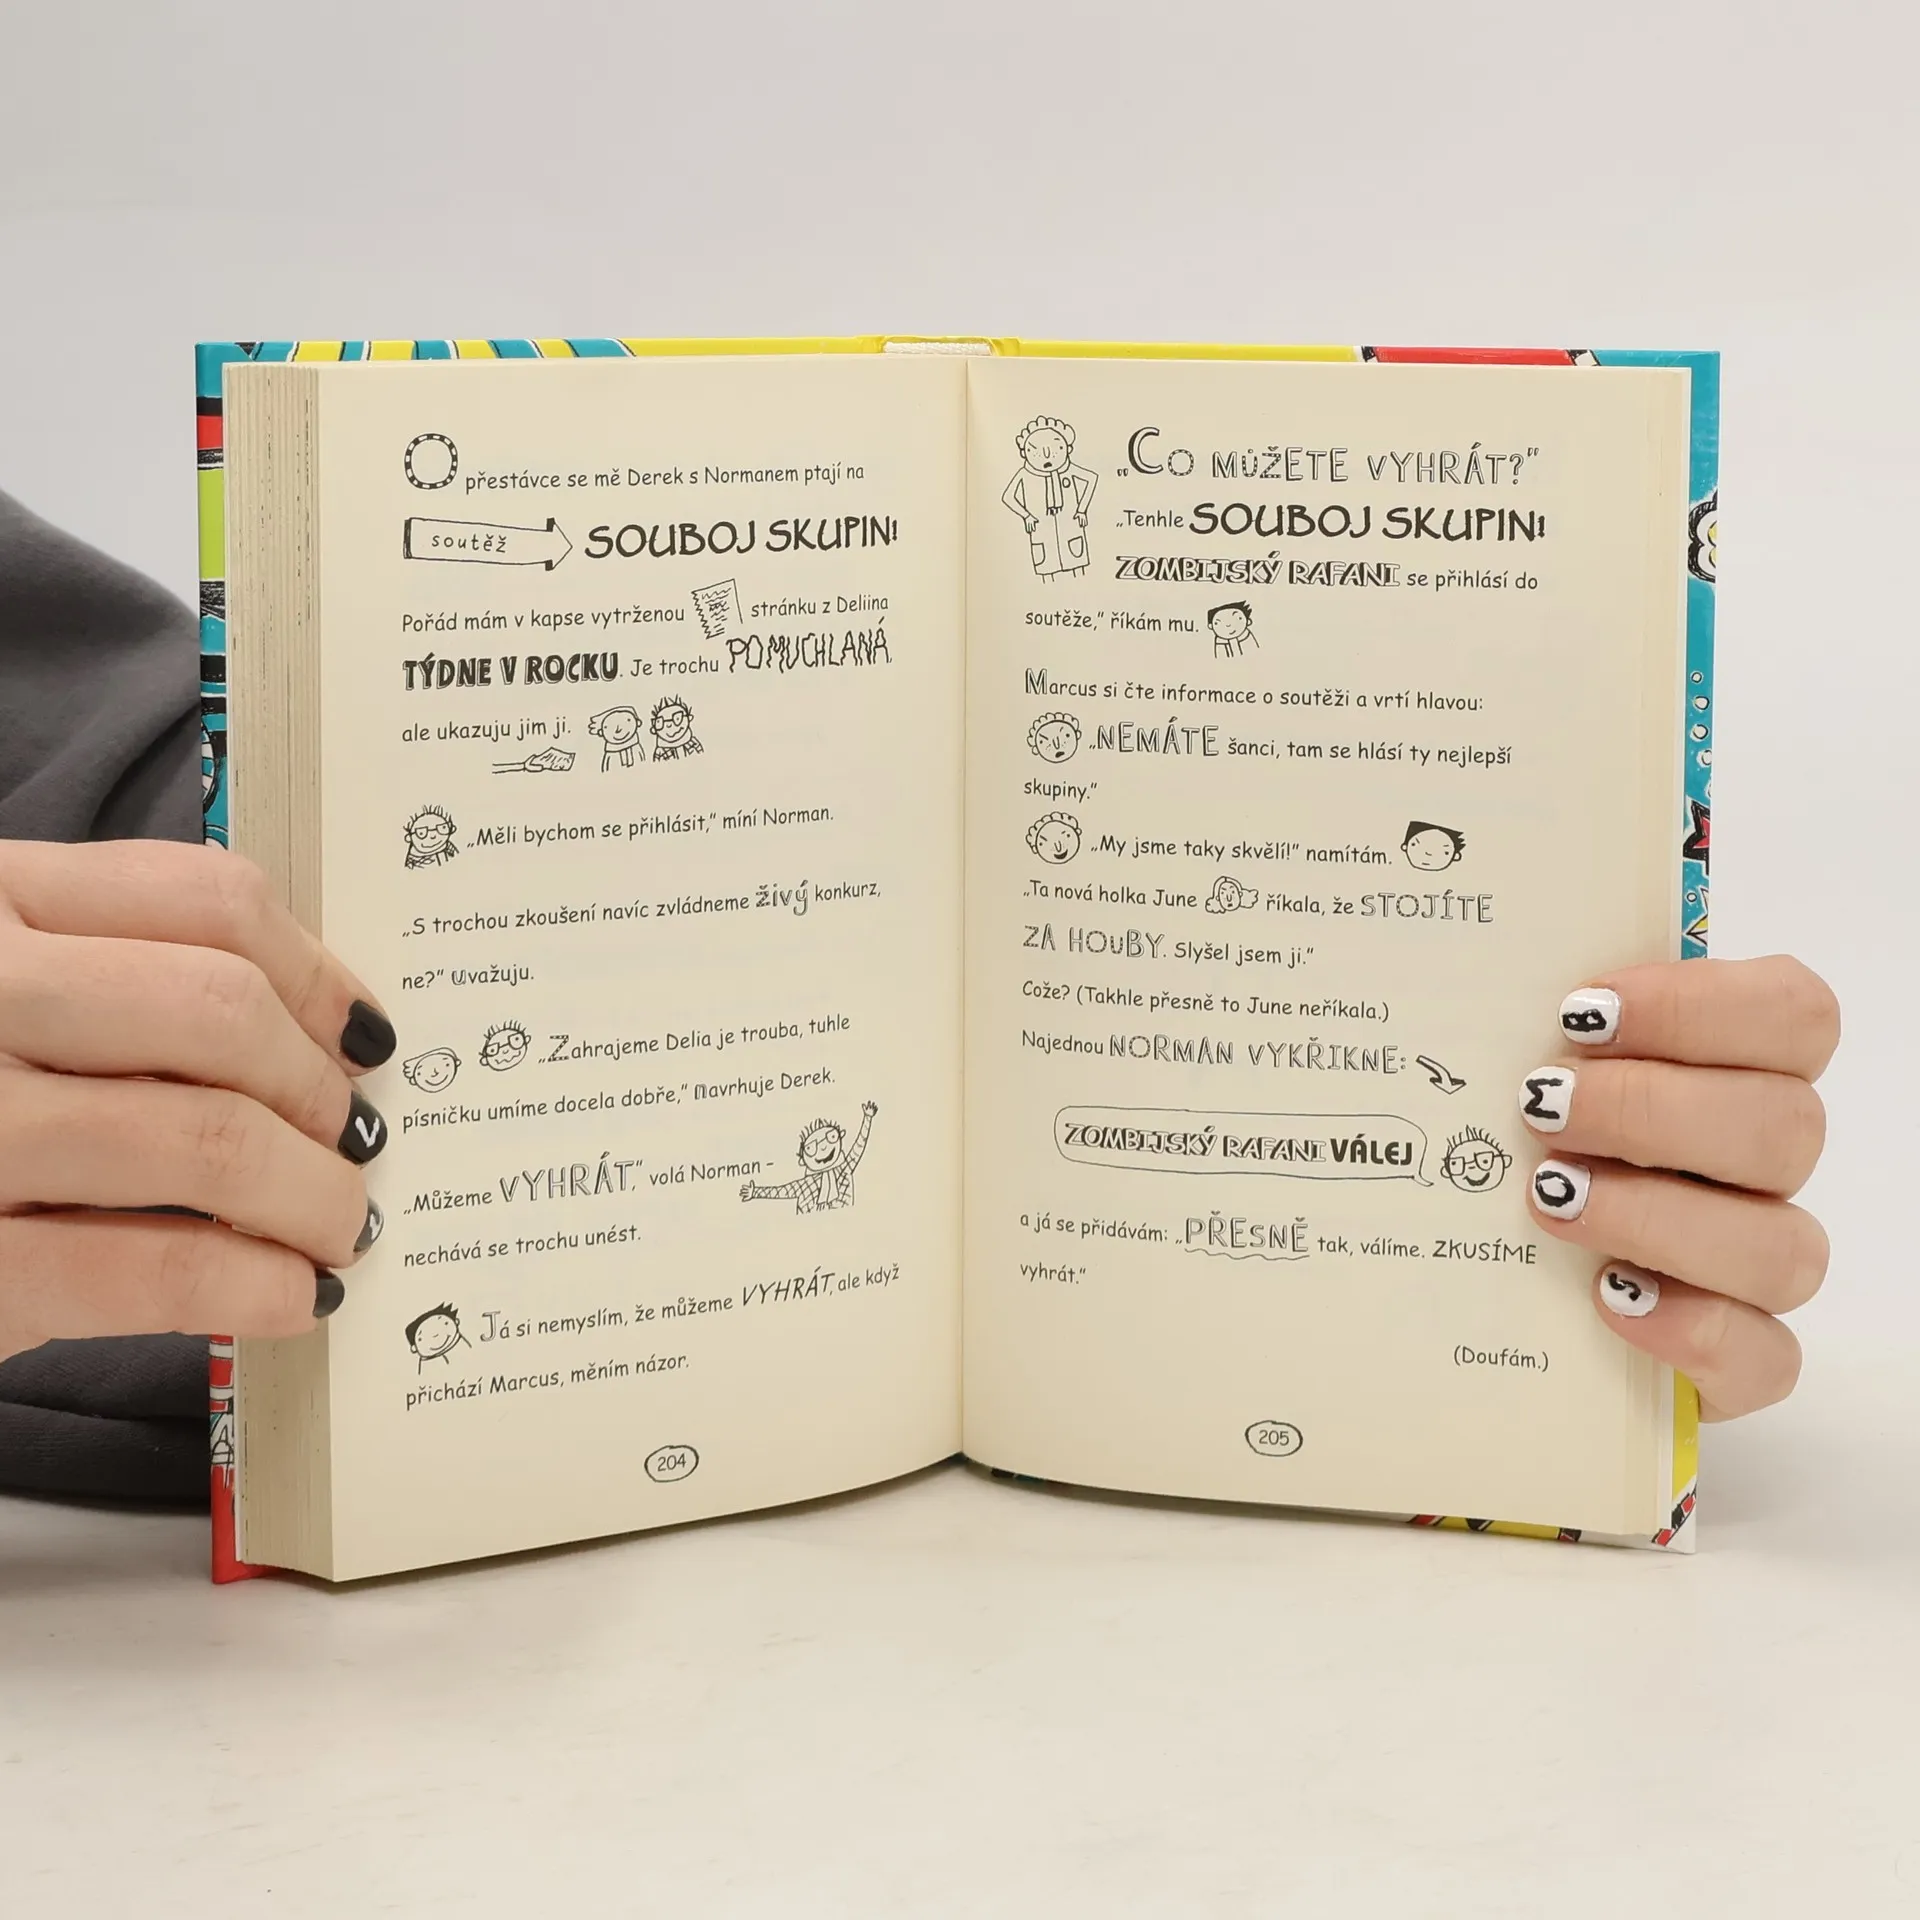 O přestávce se mě Derek s Normanem ptají na
soutěž SOUBOJ SKUPIN!
Pořád mám v kapse vytrženou stránku z Deliina
TÝDNE V ROCKU. Je trochu POMUCHLANÁ,
ale ukazuju jim ji.
„Měli bychom se přihlásit,“ míní Norman.
„S trochou zkoušení navíc zvládneme živý konkurz,
ne?“ uvažuju.
„Zahrajeme Delia je trouba, tuhle
písničku umíme docela dobře,“ navrhuje Derek.
„Můžeme VYHRÁT,“ volá Norman –
nechává se trochu unést.
Já si nemyslím, že můžeme VYHRÁT, ale když
přichází Marcus, měním názor.
204
„Co MŮŽETE VYHRÁT?“
„Tenhle SOUBOJ SKUPIN!
ZOMBIJSKÝ RAFANI se přihlásí do
soutěže,“ říkám mu.
Marcus si čte informace o soutěži a vrtí hlavou:
„NEMÁTE šanci, tam se hlásí ty nejlepší
skupiny.“
„My jsme taky skvělí!“ namítám.
„Ta nová holka June říkala, že STOJÍTE
ZA HOUBY. Slyšel jsem ji.“
Cože? (Takhle přesně to June neříkala.)
Najednou NORMAN VYKŘIKNE:
ZOMBIJSKÝ RAFANI VÁLEJ
a já se přidávám: „PŘESNĚ tak, válíme. ZKUSÍME
vyhrát.“
(Doufám.)
205
B
M
O
S